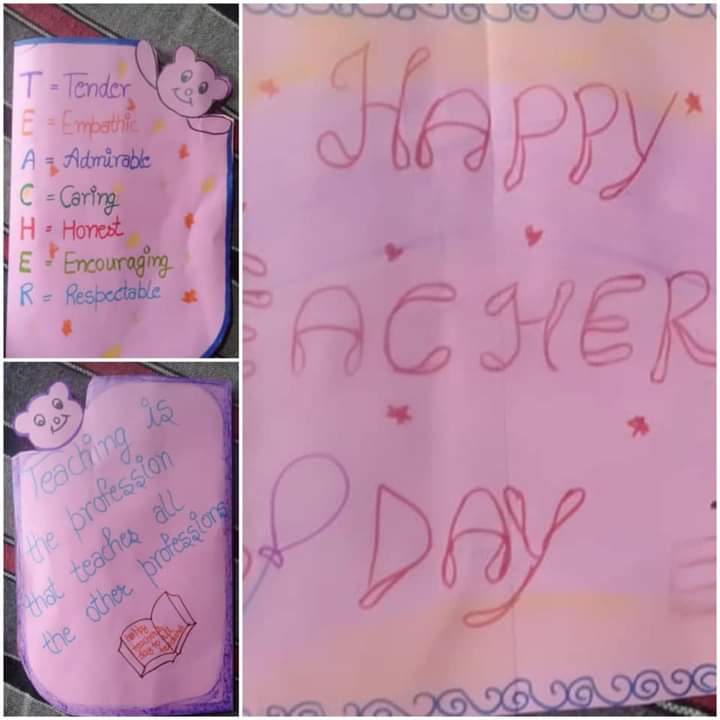 T = Tender
E = Empathic
A = Admirable
C = Caring
H = Honest
E = Encouraging
R = Respectable
Teaching is
the profession
that teaches all
the other professions
HAPPY
EACHER
DAY